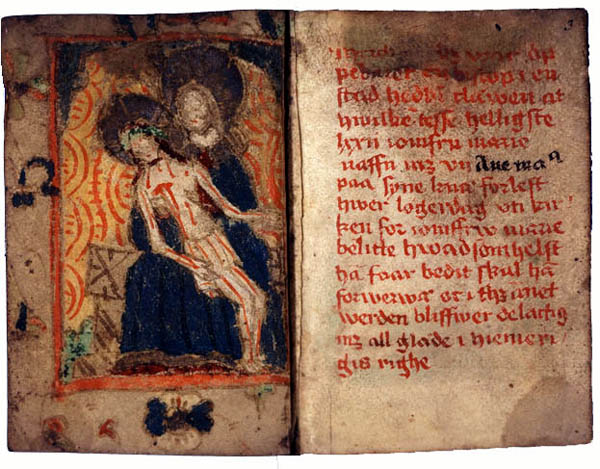 en
stad at
hwilke tesse helligste
lxxii iomfru marie
naffn mz vii Aue maa
paa syne knæ forlest
hwer løgerdag vti kir
ken for iomffrw marie
belitte hwadsomhelst
ha faar bedit skul ha
forwerwa oc i thz anet
werden bliffwer delactig
mz all glæde i hiemeri
gis righe